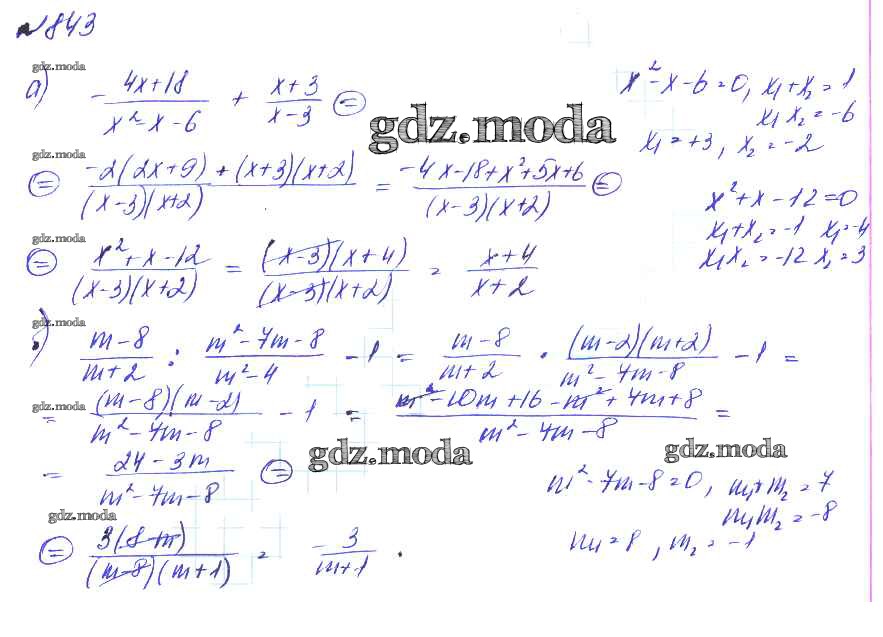 №843
gdz.moda
а) - (4x+18)/(x²-x-6) + (x+3)/(x-3) =
x²-x-6=0, x₁+x₂=1
x₁x₂=-6
x₁=+3, x₂=-2
gdz.moda
gdz.moda
= (-2(2x+9)+(x+3)(x+2))/((x-3)(x+2)) = (-4x-18+x²+5x+6)/((x-3)(x+2)) =
x²+x-12=0
x₁+x₂=-1 x₁=-4
x₁x₂=-12 x₂=3
gdz.moda
= (x²+x-12)/((x-3)(x+2)) = ((x-3)(x+4))/((x-3)(x+2)) = (x+4)/(x+2)
gdz.moda
б) (m-8)/(m+2) : (m²-7m-8)/(m²-4) -1 = (m-8)/(m+2) · ((m-2)(m+2))/(m²-7m-8) -1 =
gdz.moda
= ((m-8)(m-2))/(m²-7m-8) -1 = (m²-10m+16-m²+7m+8)/(m²-7m-8) =
gdz.moda
gdz.moda
= (24-3m)/(m²-7m-8) =
m²-7m-8=0, m₁+m₂=7
m₁m₂=-8
m₁=8, m₂=-1
gdz.moda
= (3(8-m))/((m-8)(m+1)) = - 3/(m+1) .